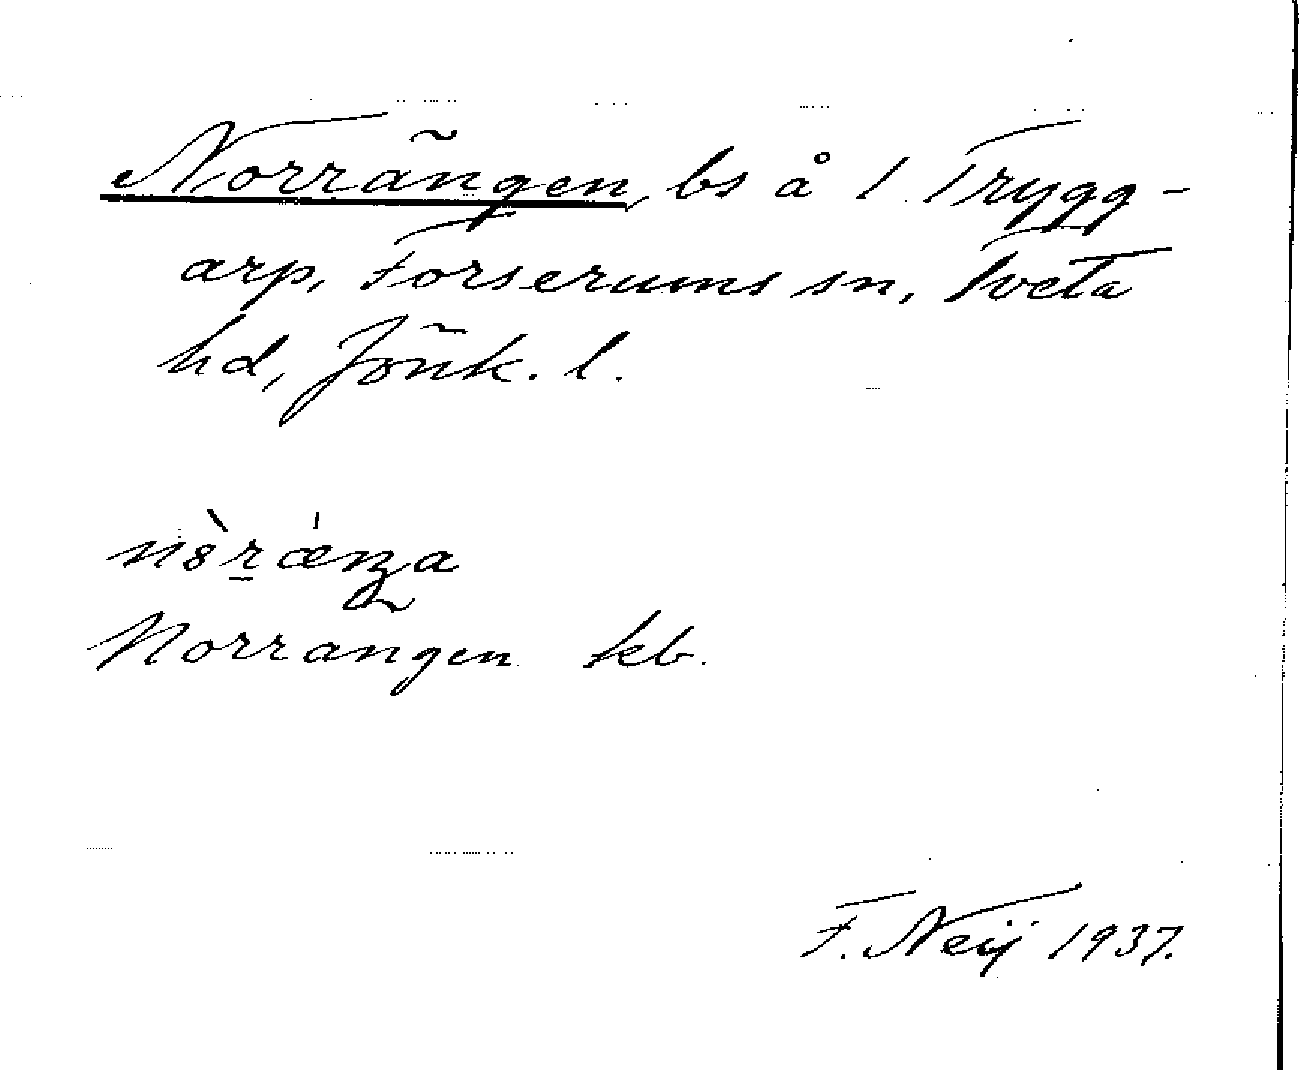 Norrängen, bs å 1 Trygg-
arp, Forserums sn, Tveta
hd, Jönk. l.
Norrangen kb.
F. Neij 1937.